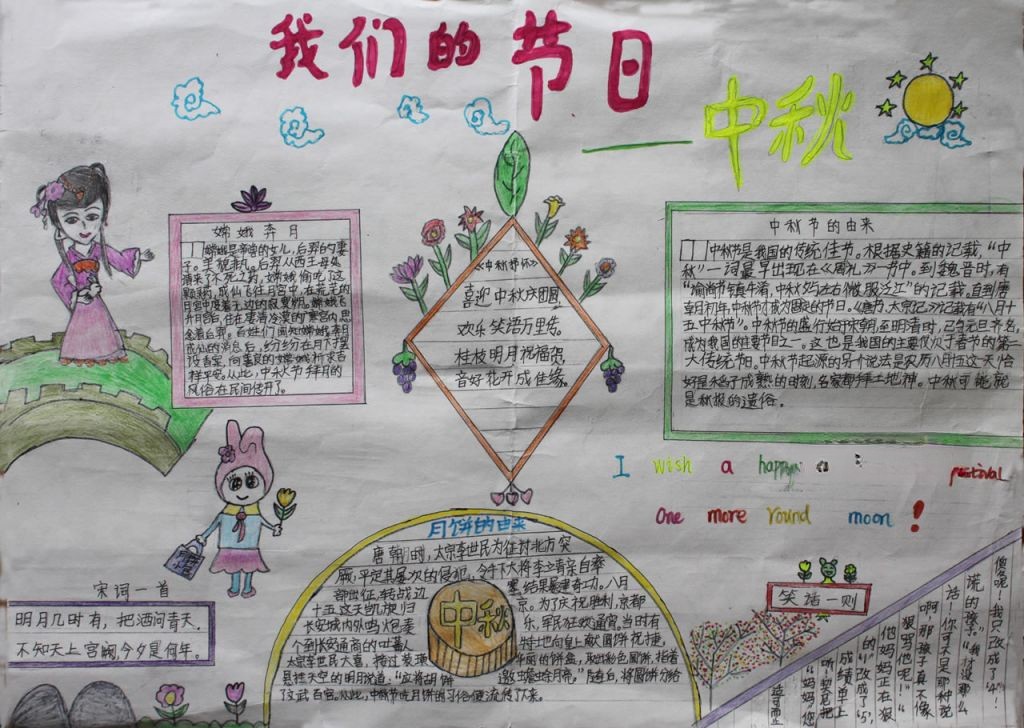 我们的节日
——中秋
嫦娥奔月
嫦娥是帝喾的女儿,后羿的妻
子。美貌非凡。后羿从西王母处
请来了不死之药,嫦娥偷吃了这
颗药,成仙飞往月宫中,在荒芜的
念着后羿。百姓们闻知嫦娥奔月
成仙的消息后,纷纷在月下摆
设香案,向善良的嫦娥祈求吉
祥平安。从此,中秋节拜月的
风俗在民间传开了。
《中秋抒怀》
喜迎中秋庆团圆,
欢乐笑语万里传。
桂枝明月祝福您,
音好花开成佳缘。
中秋节的由来
中秋节是我国的传统佳节。根据史籍的记载,“中
秋”一词最早出现在《周礼》一书中。到魏晋时,有
“谕尚书镇牛渚,中秋夕与左右微服泛江”的记载。直到唐
朝初年,中秋节才成为固定的节日。《唐书·太宗记》记载有“八月十
五中秋节”。中秋节的盛行始于宋朝,至明清时,已与元旦齐名,
成为我国的主要节日之一。这也是我国的主要仅次于春节的第二
大传统节日。中秋节起源的另个说法是农历八月十五这天恰
好是稻子成熟的时刻,各家都拜土地神。中秋可能就
是秋报的遗俗。
I wish a happy a
festival
One more round moon !
月饼的由来
唐朝时,太宗李世民为征讨北方突
厥,平定其屡次的侵犯,令手下大将李靖亲自率
都出征,转战边塞,结果屡建奇功。八月
十五这天凯旋归京。为了庆祝胜利,京都
长安城内外鸣炮奏乐,军民狂欢通宵。当时有
个到长安通商的吐蕃人特地向皇上献圆饼祝捷。
太宗李世民大喜,接过装璜华丽的饼盒,取出彩色圆饼,指着
悬挂天空的明月说道:“应将胡饼邀蟾蜍月亮。”随后,将圆饼分给
了文武百官。从此,中秋节吃月饼的习俗便流传下来。
中秋
宋词一首
明月几时有,把酒问青天。
不知天上宫阙,今夕是何年。
笑话一则
傻呢!我只改成了“4”!
谎的孩子。”“我才没那么
话!你可不是那种说
啊,那孩子真不像
狠骂他呢!”
他妈妈正在狠
的1改成了“5”,
成绩单上
听说
“妈妈,您